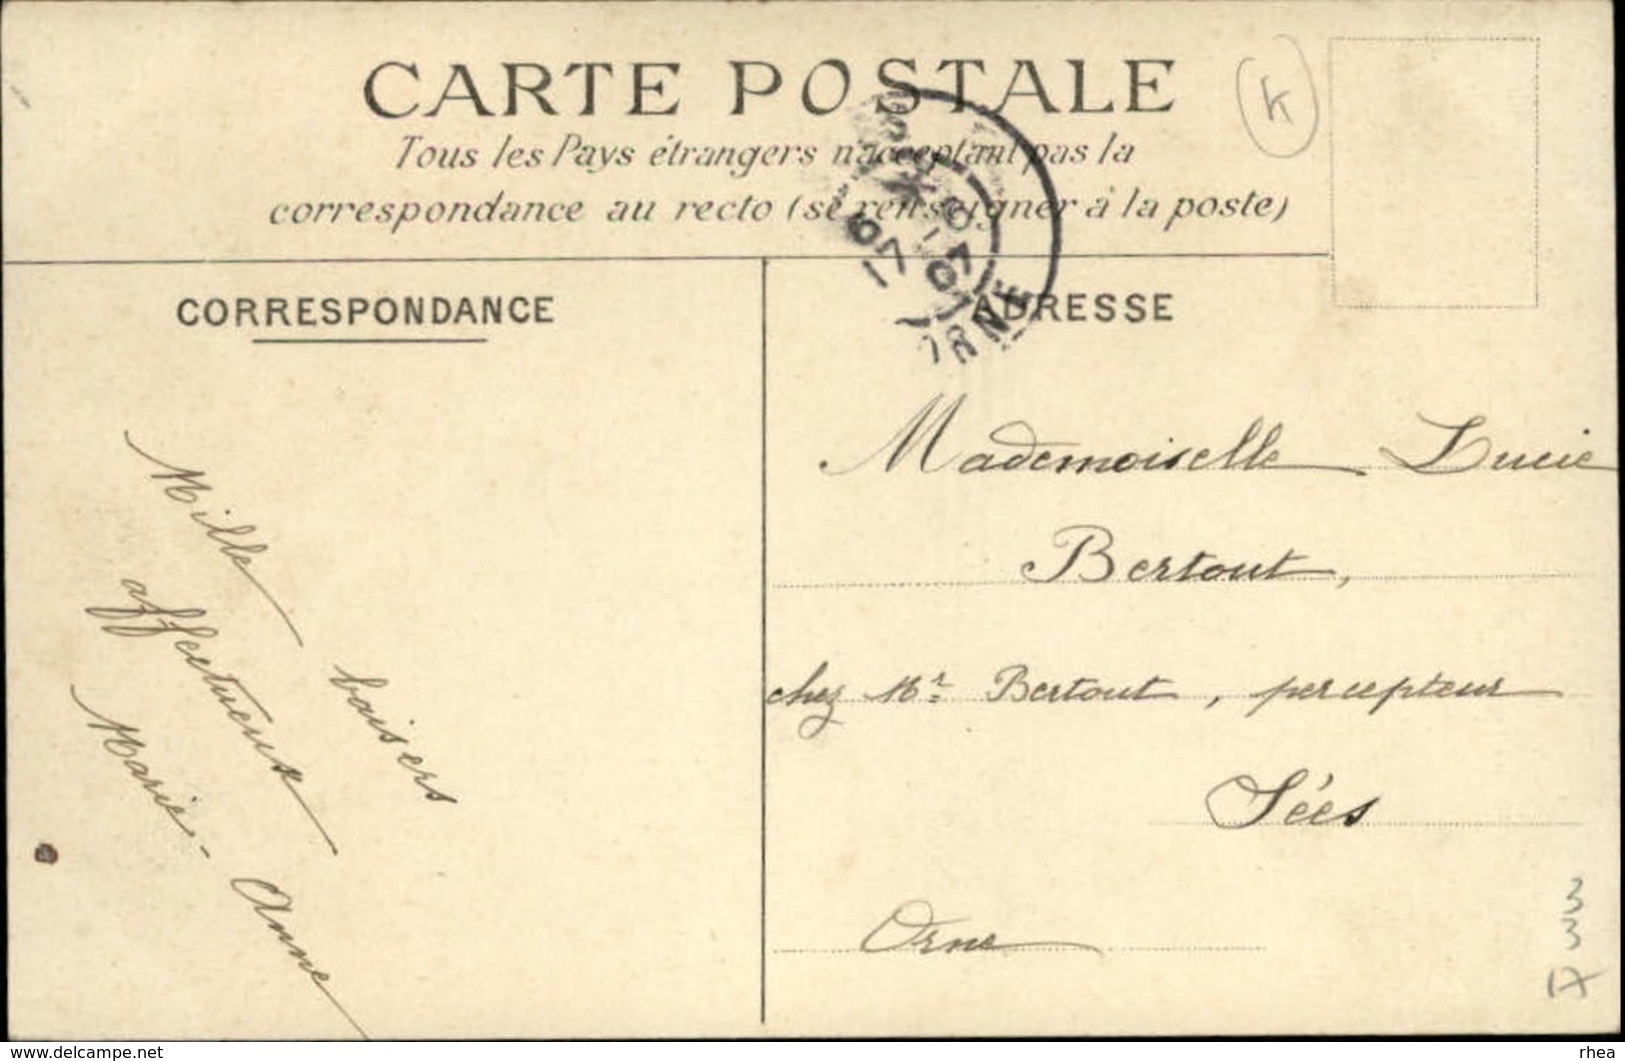 CARTE POSTALE
Tous les Pays étrangers n'acceptant pas la
correspondance au recto (se renseigner à la poste)
K
CORRESPONDANCE
ADRESSE
ORNE
Mille baisers
affectueux
Marie-Anne
Mademoiselle Lucie
Bertout,
chez Mr Bertout, percepteur
Sées
Orne
www.delcampe.net
rhea